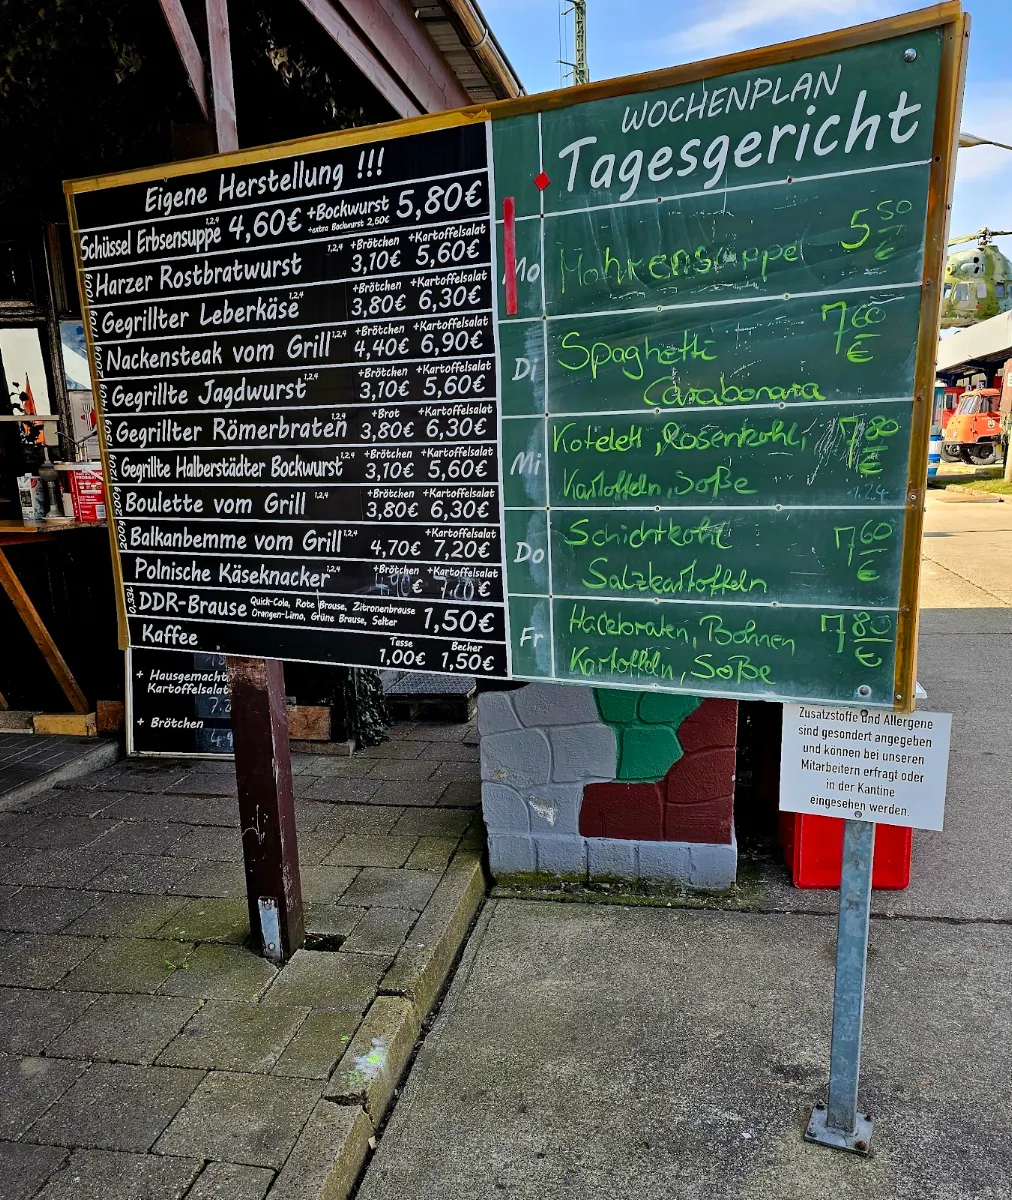 Eigene Herstellung !!!
Schüssel Erbsensuppe 1,2,4 4,60€ +Bockwurst 5,80€
+extra Bockwurst 2,60€
100g Harzer Rostbratwurst 1,2,4 +Brötchen 3,10€ +Kartoffelsalat 5,60€
Gegrillter Leberkäse 1,2,4 +Brötchen 3,80€ +Kartoffelsalat 6,30€
200g Nackensteak vom Grill 1,2,4 +Brötchen 4,40€ +Kartoffelsalat 6,90€
Gegrillte Jagdwurst 1,2,4 +Brötchen 3,10€ +Kartoffelsalat 5,60€
150g Gegrillter Römerbraten 1,2,4 +Brot 3,80€ +Kartoffelsalat 6,30€
120g Gegrillte Halberstädter Bockwurst 1,2,4 +Brötchen 3,10€ +Kartoffelsalat 5,60€
200g Boulette vom Grill 1,2,4 +Brötchen 3,80€ +Kartoffelsalat 6,30€
200g Balkanbemme vom Grill 1,2,4 4,70€ +Kartoffelsalat 7,20€
Polnische Käseknacker 1,2,4 +Brötchen 4,90€ +Kartoffelsalat €
0,33L DDR-Brause Quick-Cola, Rote Brause, Zitronenbrause 1,50€
Orangen-Limo, Grüne Brause, Selter
Kaffee Tasse 1,00€ Becher 1,50€
+ Hausgemacht
Kartoffelsalat
+ Brötchen
WOCHENPLAN
Tagesgericht
Mo Mohrensuppe 5 50 €
Di Spaghetti 7 60 €
Carabonara
Mi Kotelett, Rosenkohl, 7 80 €
Kartoffeln, Soße 1,2,4
Do Schichtkohl 7 60 €
Salzkartoffeln
Fr Hackbraten, Bohnen 7 80 €
Kartoffeln, Soße
Zusatzstoffe und Allergene
sind gesondert angegeben
und können bei unseren
Mitarbeitern erfragt oder
in der Kantine
eingesehen werden.